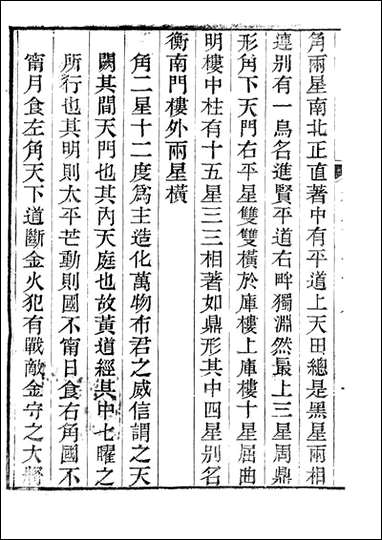 角兩星南北正直著中有平道上天田總是黑星兩相
連別有一烏名進賢平道右畔獨淵然最上三星周鼎
形角下天門右平星雙雙橫於庫樓上庫樓十星屈曲
明樓中柱有十五星三三相著如鼎形其中四星別名
衡南門樓外兩星橫
角二星十二度爲主造化萬物布君之威信謂之天
闕其間天門也其內天庭也故黃道經其中七曜之
所行也其明則太平芒動則國不甯日食右角國不
甯月食左角天下道斷金火犯有戰敵金守之大將